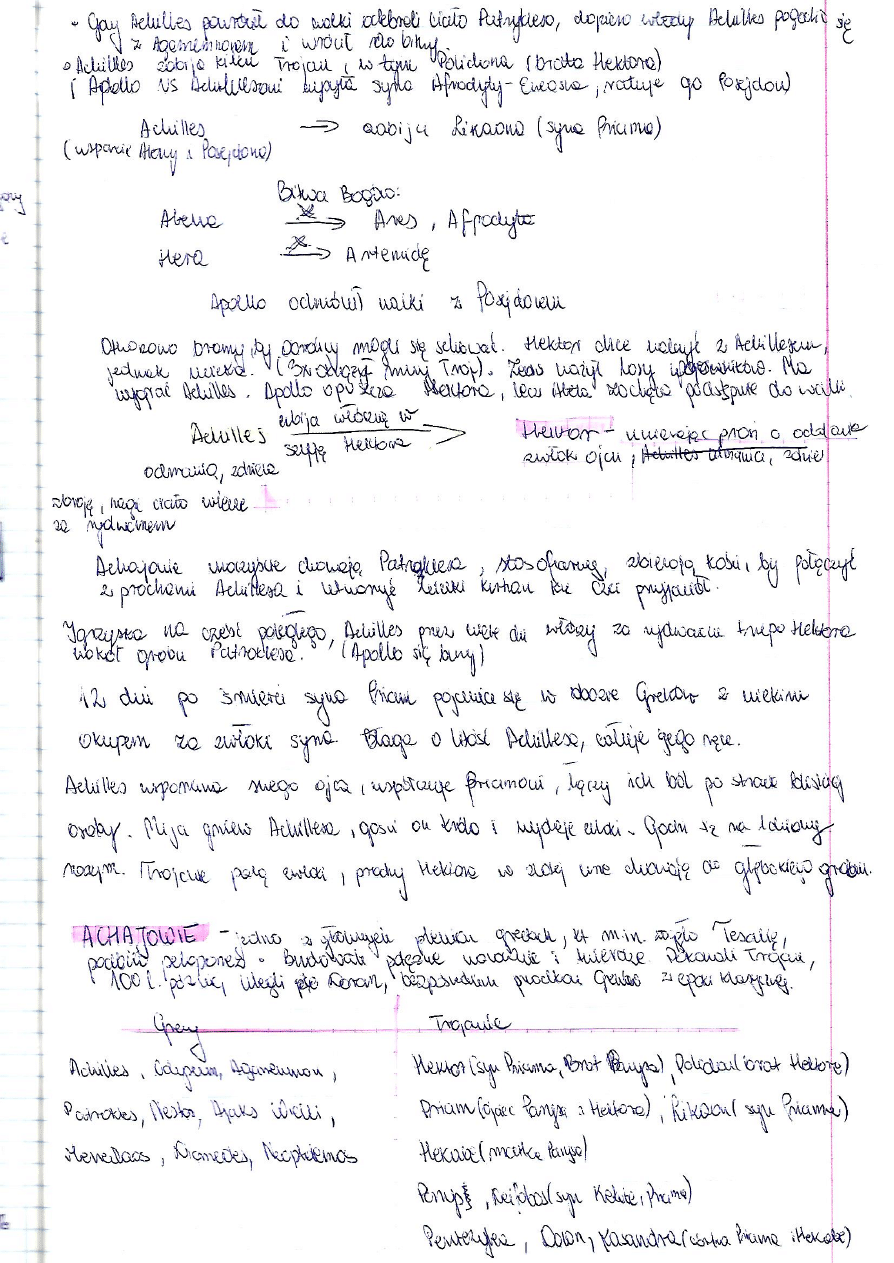 • Gdy Achilles powrócił do walki odebrali ciało Patroklesa, dopiero wtedy Achilles pogodził się
z Agamemnonem i wrócił do bitwy.
• Achilles zabija kilku Trojan, w tym Polidora (brata Hektora)
( Apollo VS Achillesowi wysyła syna Afrodyty - Eneasza, ratuje go Posejdon)
Achilles → zabija Likaona (syna Priama)
(wsparcie Ateny i Posejdona)
Bitwa Bogów:
Atena → Ares, Afrodyta
Hera → Artemidę
Apollo odmówił walki z Posejdonem
Otworzono bramy, by obrońcy mogli się schować. Hektor chce walczyć z Achillesem,
jednak ucieka. (3x okrążył mury Troi). Zeus ważył losy. Ma
wygrać Achilles. Apollo opuszcza Hektora, lecz Atena zachęca podstępnie do walki.
Achilles wbija włócznię w szyję Hektora → Hektor - umierając prosi o oddanie
zwłok ojcu, Achilles odmawia, zdziera
odmawia, zdziera
zbroję, nagie ciało wlecze
za rydwanem
Achajowie uroczyście chowają Patroklesa, stos ofiarny, zbierają kości, by połączyć
z prochami Achillesa i utworzyć kurhan ku czci przyjaciół.
Igrzyska na cześć poległego, Achilles przez wiele dni włóczy za rydwanem trupa Hektora
wokół grobu Patroklesa. (Apollo się)
12 dni po śmierci syna Priam pojawia się w obozie Greków z wielkim
okupem za zwłoki syna. Błaga o litość Achillesa, całuje jego ręce.
Achilles wspomina swego ojca, współczuje Priamowi, łączy ich ból po stracie bliskiej
osoby. Mija gniew Achillesa, gości on króla i wydaje zwłoki. Godzi się na
rozejm. Trojanie palą zwłoki, prochy Hektora w złotej urnie chowają do głębokiego grobu.
ACHAJOWIE - jedno z głównych plemion greckich, kt. m.in. zajęło Tesalię,
podbili peloponez. Budowali potężne warownie i twierdze. Pokonali Trojan,
100 l. później ulegli Dorom, bezpośredni przodkowie Greków z epoki klasycznej.
Grecy Trojanie
Achilles, Odyseusz, Agamemnon, Hektor (syn Priama, Brat Parysa), Polidor (brat Hektora)
Patrokles, Nestor, Ajaks Wielki, Priam (ojciec Parysa i Hektora), Likaon (syn Priama)
Menelaos, Diomedes, Neoptolemos Hekabe (matka Parysa)
Parys, Deifobos (syn Hekabe i Priama)
Pentezylea, Dolon, Kasandra (córka Priama i Hekabe)